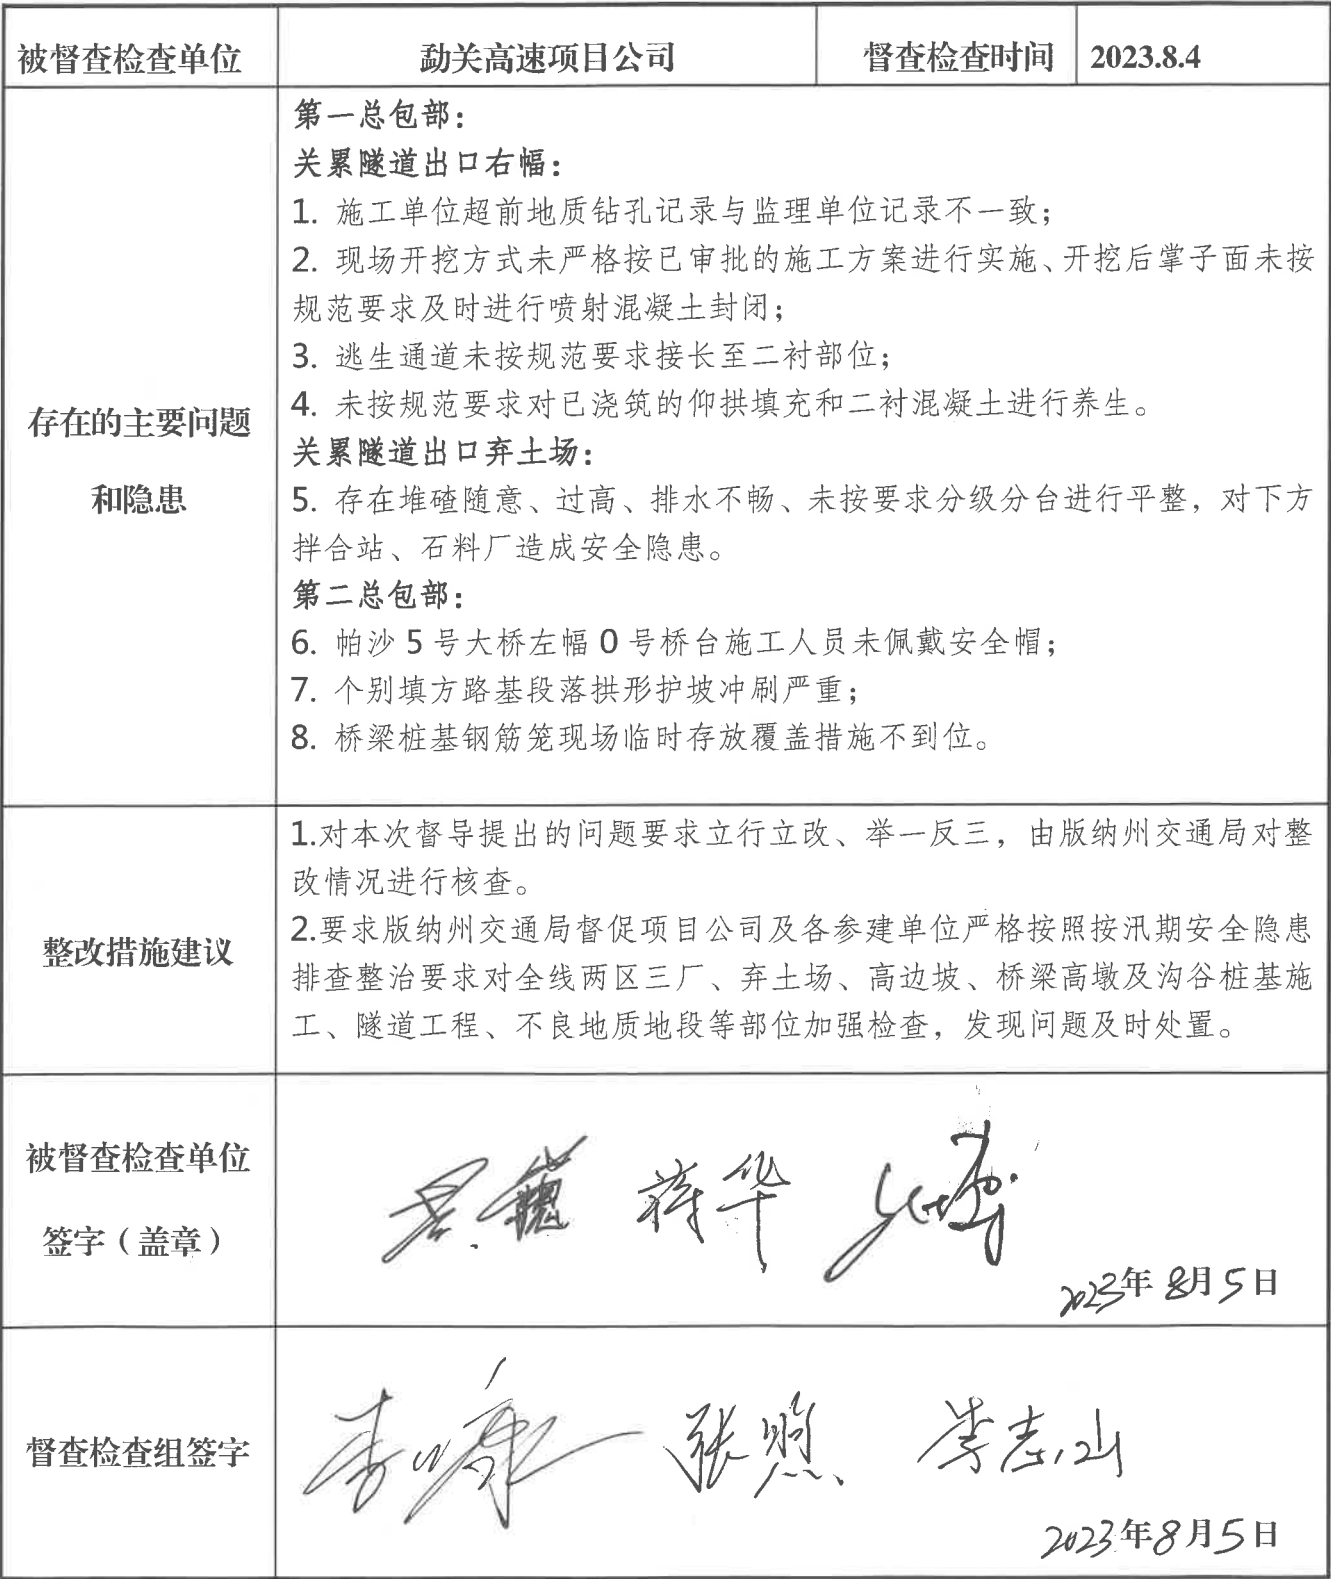 被督查检查单位 勐关高速项目公司 督查检查时间 2023.8.4
存在的主要问题
和隐患
第一总包部：
关累隧道出口右幅：
1. 施工单位超前地质钻孔记录与监理单位记录不一致；
2. 现场开挖方式未严格按已审批的施工方案进行实施、开挖后掌子面未按
规范要求及时进行喷射混凝土封闭；
3. 逃生通道未按规范要求接长至二衬部位；
4. 未按规范要求对已浇筑的仰拱填充和二衬混凝土进行养生。
关累隧道出口弃土场：
5. 存在堆碴随意、过高、排水不畅、未按要求分级分台进行平整，对下方
拌合站、石料厂造成安全隐患。
第二总包部：
6. 帕沙 5 号大桥左幅 0 号桥台施工人员未佩戴安全帽；
7. 个别填方路基段落拱形护坡冲刷严重；
8. 桥梁桩基钢筋笼现场临时存放覆盖措施不到位。
整改措施建议
1.对本次督导提出的问题要求立行立改、举一反三，由版纳州交通局对整
改情况进行核查。
2.要求版纳州交通局督促项目公司及各参建单位严格按照按汛期安全隐患
排查整治要求对全线两区三厂、弃土场、高边坡、桥梁高墩及沟谷桩基施
工、隧道工程、不良地质地段等部位加强检查，发现问题及时处置。
被督查检查单位
签字（盖章）
蒋华
2023年8月5日
督查检查组签字
张煦 李志山
2023年8月5日